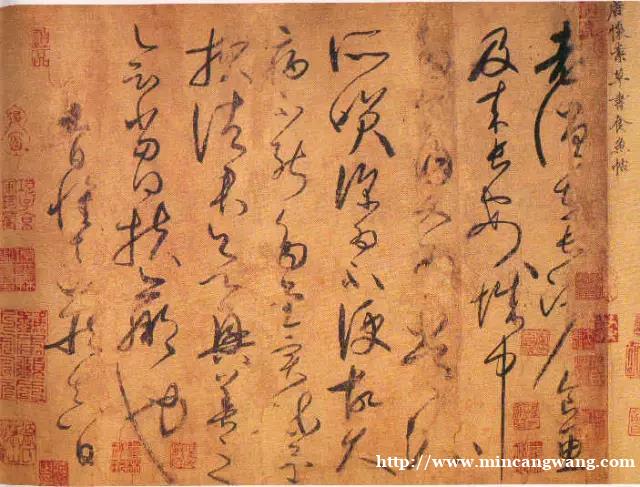 唐懷素草書食魚帖
老僧在長沙食魚
及来長安城中
多食肉又为常流
所笑深为不便故久
病不能多書實疏還
报諸君欲興善之
會当得扶羸也
九日懷素藏真白
http://www.mincangwang.com